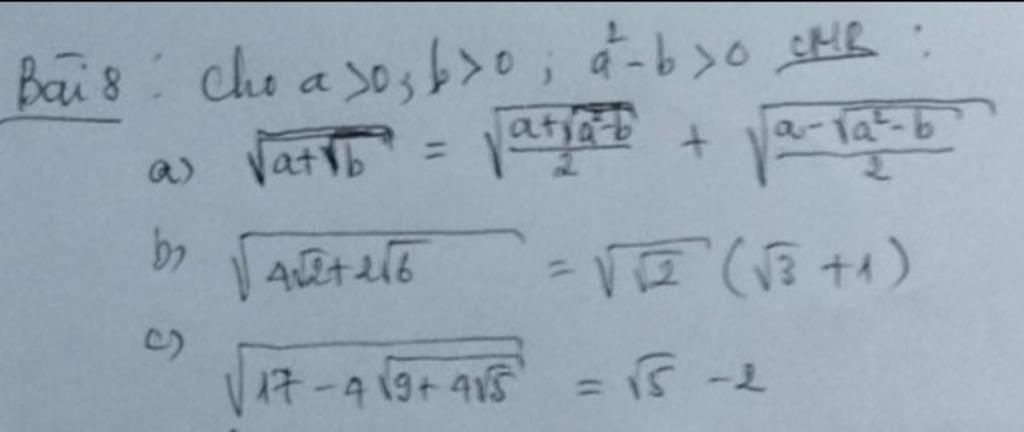 Bài 8 : Cho a >0; b>0 ; a² - b >0 CMR :
a) √(a+√b) = √((a+√(a²-b))/2) + √((a-√(a²-b))/2)
b) √(4√2+2√6) = √(√2) (√3 +1)
c) √(17 - 4√(9+4√5)) = √5 - 2